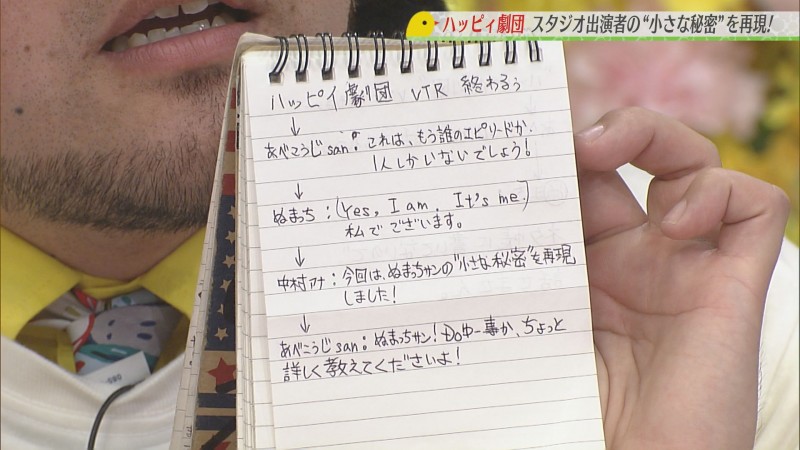 ハッピィ劇団 スタジオ出演者の“小さな秘密”を再現!
ハッピィ劇団 VTR 終わるぅ
↓
あべこうじsan: これは、もう誰のエピソードか、
1人しかいないでしょう!
↓
ぬまっち:(Yes, I am. It's me.)
私でございます。
↓
中村アナ:今回は、ぬまっちサンの“小さな秘密”を再現
しました!
↓
あべこうじsan: ぬまっちサン!Doゆー事か、ちょっと
詳しく教えてくださいよ!